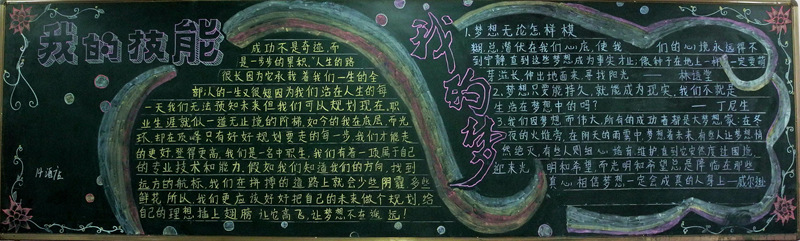 我的技能
成功不是奇迹,而
是一步步的累积,人生的路
很长因为它承载着我们一生的全
部,人的一生又很短因为我们活在人生的每
一天我们无法预知未来但我们可以规划现在,职
业生涯就似一道无止境的阶梯,如今的我在底层,而光
环,却在顶峰只有好好规划要走的每一步,我们才能走
的更好,登得更高,我们是一名中职生,我们有着一项属于自己
的专业技术和能力,假如我们知道我们的方向,找到
远方的航标,我们在拼搏的道路上就会少些阴霾,多些
鲜花,所以,我们更应该好好把自己的未来做个规划,给
自己的理想插上翅膀,让它高飞,让梦想不在遥远!
我的梦
1.梦想无论怎样模
糊,总潜伏在我们心底,使我们的心境永远得不
到宁静,直到这些梦想成为事实才止,像种子在地上一样一定要萌
芽滋长,伸出地面来寻找阳光 —— 林语堂
2.梦想只要能持久,就能成为现实,我们不就是
生活在梦想中的吗? —— 丁尼生
3.我们因梦想而伟大,所有的成功者都是大梦想家:在冬
夜的火堆旁,在阴天的雨雾中,梦想着未来,有些人让梦想悄
然绝灭,有些人则细心培育维护,直到它安然度过困境,
迎来光明和希望,而光明和希望总是降临在那些
真心相信梦想一定会成真的人身上——威尔逊